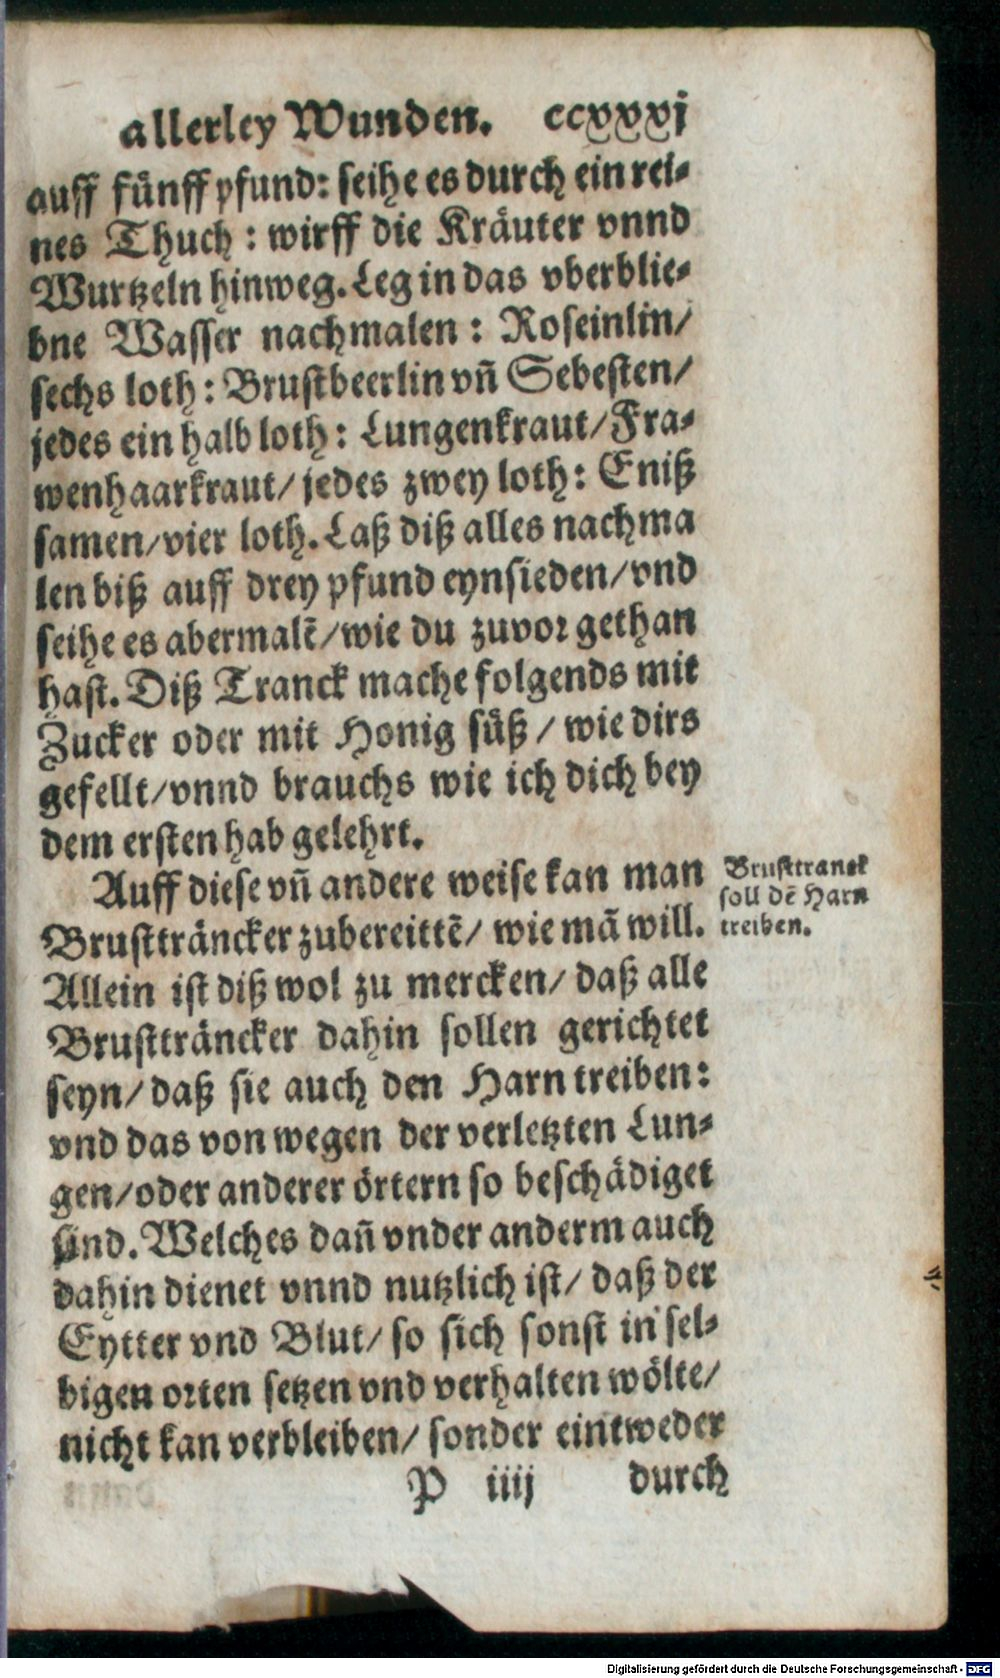 allerley Wunden. ccxxxj
auff fünff pfund: seihe es durch ein rei-
nes Thuch: wirff die Kräuter vnnd
Wurtzeln hinweg. Leg in das vberblie-
bne Wasser nachmalen: Roseinlin/
sechs loth: Brustbeerlin vñ Sebesten/
jedes ein halb loth: Lungenkraut/Fra-
wenhaarkraut/ jedes zwey loth: Eniß
samen/vier loth. Laß diß alles nachma
len biß auff drey pfund eynsieden/vnd
seihe es abermalẽ/wie du zuvor gethan
hast. Diß Tranck mache folgends mit
Zucker oder mit Honig süß / wie dirs
gefellt/vnnd brauchs wie ich dich bey
dem ersten hab gelehrt.
Auff diese vñ andere weise kan man
Brustträncker zubereittẽ/ wie mã will.
Allein ist diß wol zu mercken/ daß alle
Brustträncker dahin sollen gerichtet
seyn/ daß sie auch den Harn treiben:
vnd das von wegen der verletzten Lun-
gen/oder anderer örtern so beschädiget
sind. Welches dañ vnder anderm auch
dahin dienet vnnd nutzlich ist/ daß der
Eytter vnd Blut/ so sich sonst in sel-
bigen orten setzen vnd verhalten wölte/
nicht kan verbleiben/ sonder eintweder
P iiij durch
Brusttranck
soll dẽ Harn
treiben.
Digitalisierung gefördert durch die Deutsche Forschungsgemeinschaft - DFG